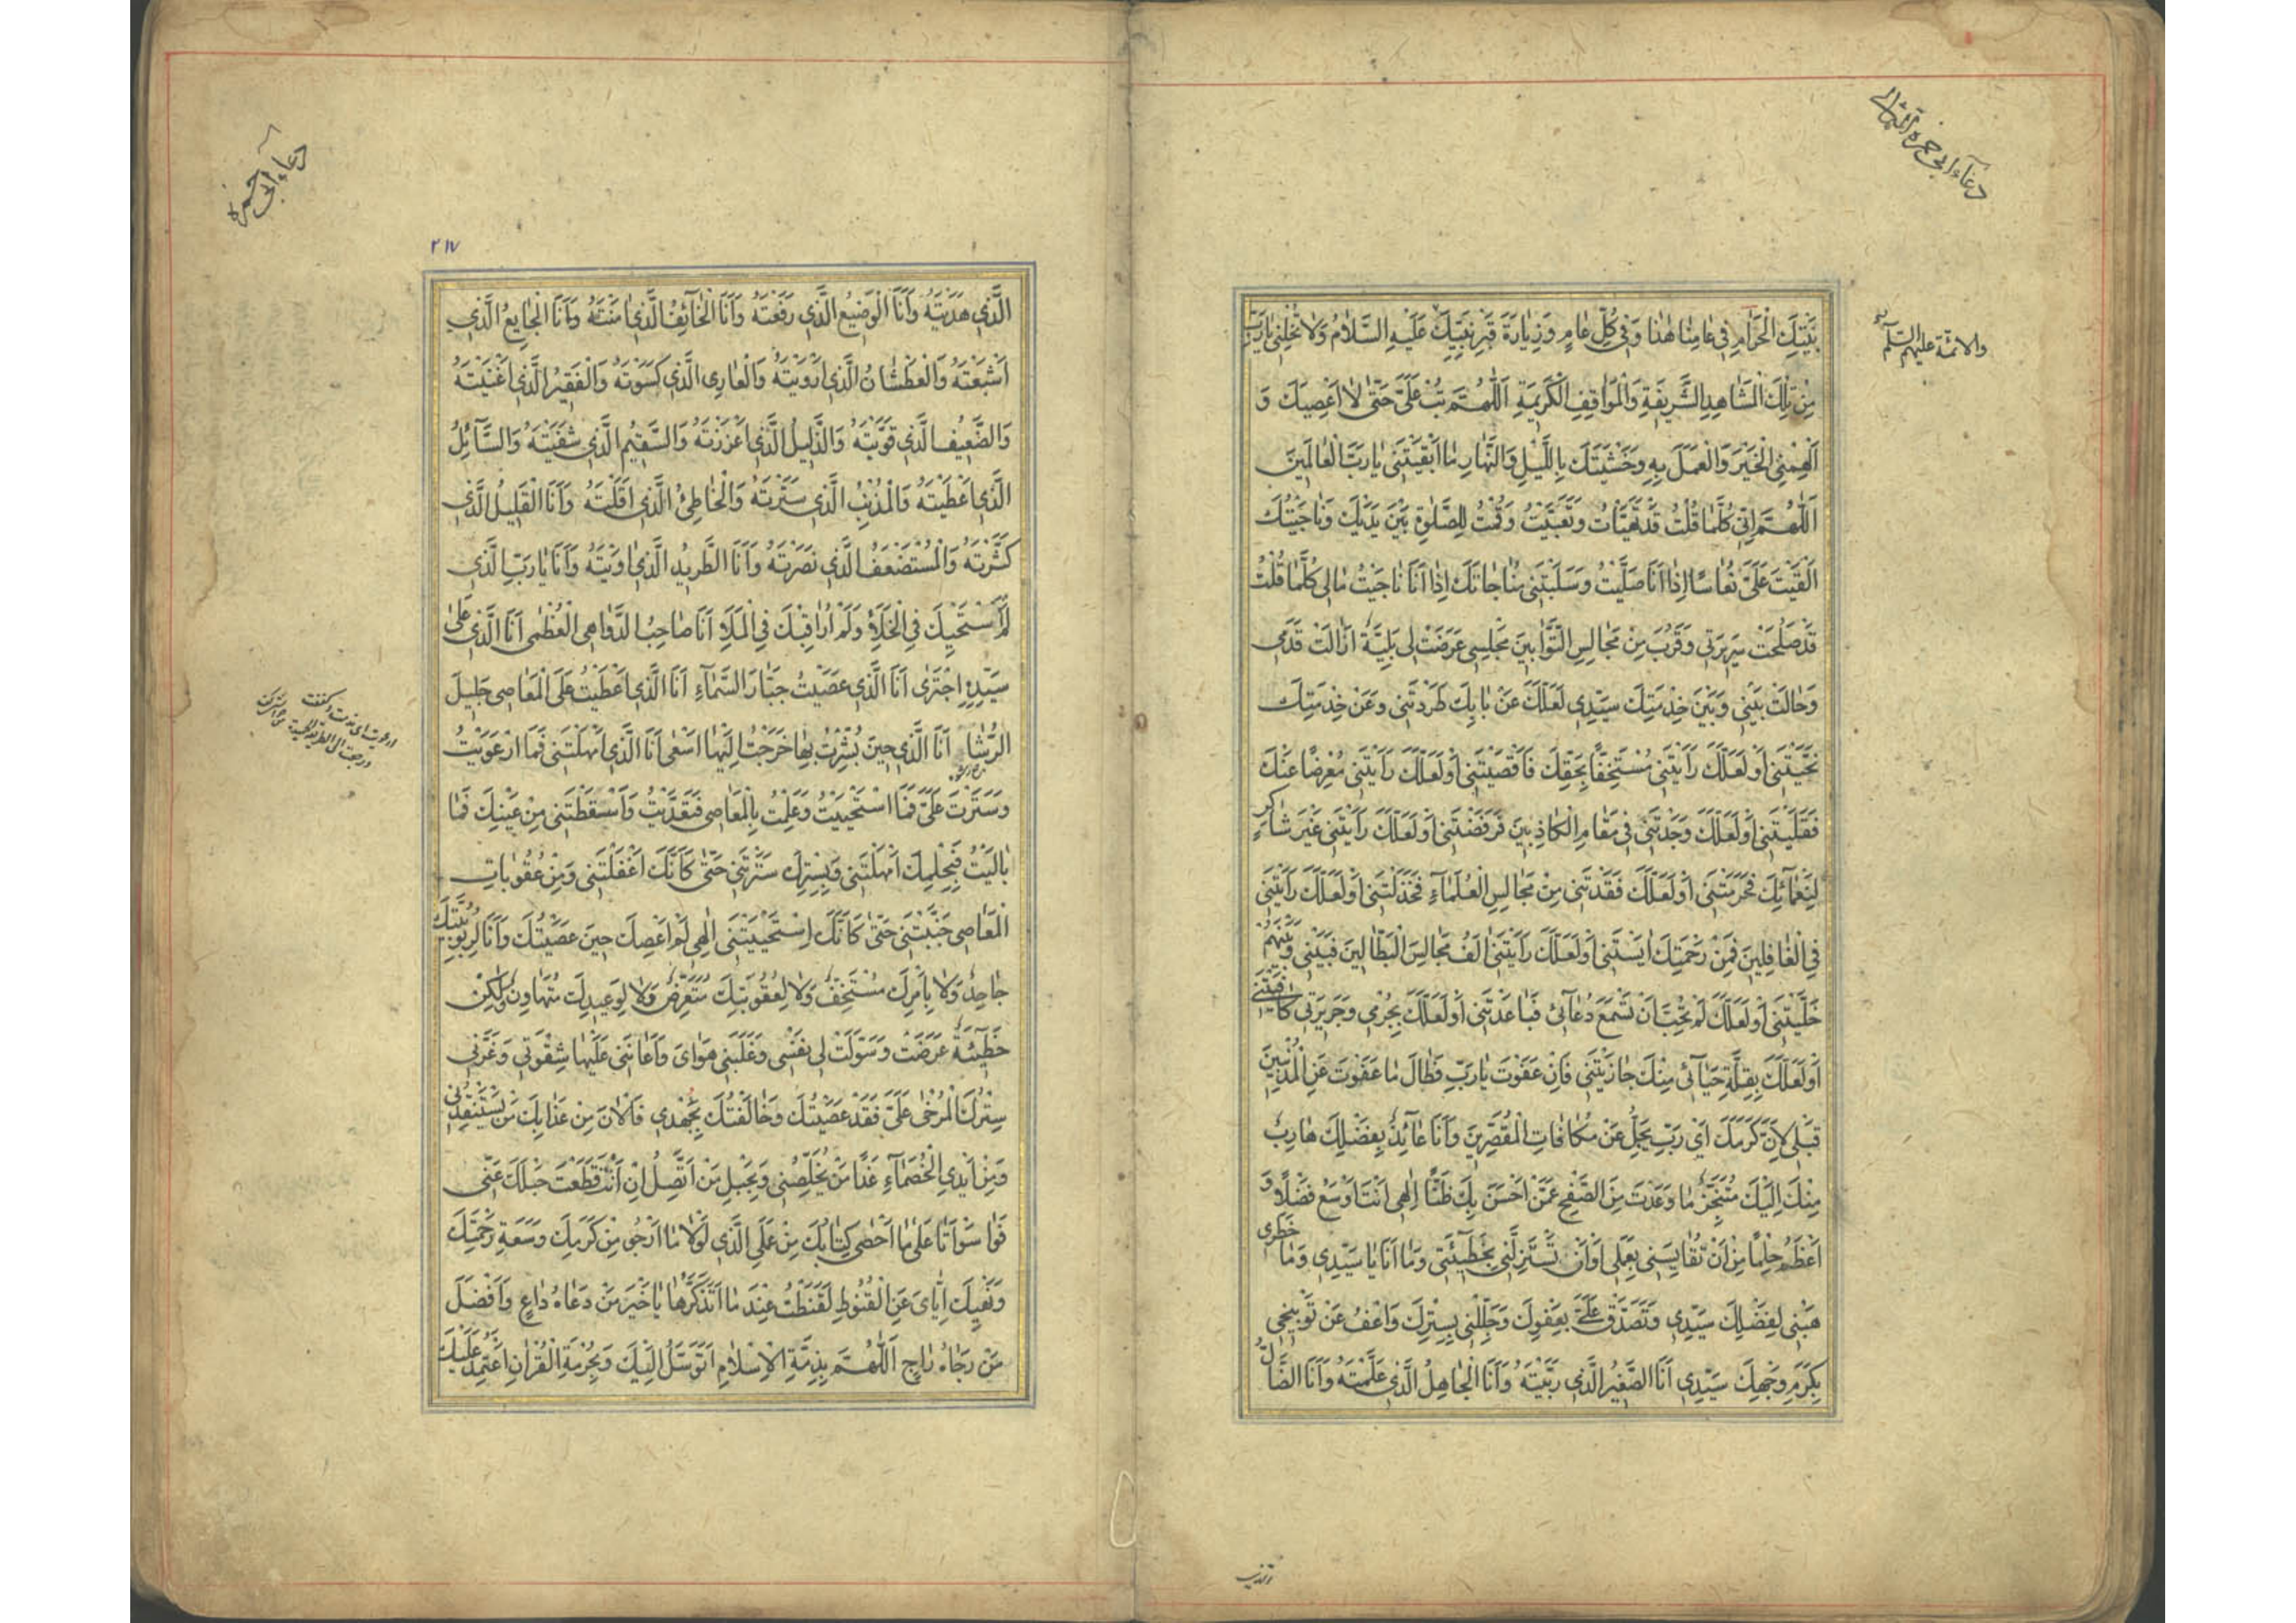 دعآء ابی حمزه الثمالی
بَيْتِكَ الْحَرٰامِ فِي عٰامِنٰا هٰذٰا وَفِي كُلِّ عٰامٍ وَزِيٰارَةَ قَبْرِ نَبِيِّكَ عَلَيْهِ السَّلٰامُ وَلٰا تُخْلِنِي يٰارَبِّ
والائمة عليهم السلم
مِنْ تِلْكَ الْمَشٰاهِدِ الشَّرِيفَةِ وَالْمَوٰاقِفِ الْكَرِيمَةِ اَللّٰهُمَّ تُبْ عَلَيَّ حَتّٰى لٰا اَعْصِيَكَ وَ
اَلْهِمْنِي الْخَيْرَ وَالْعَمَلَ بِهِ وَخَشْيَتَكَ بِاللَّيْلِ وَالنَّهٰارِ مٰا اَبْقَيْتَنِي يٰا رَبَّ الْعٰالَمِينَ
اَللّٰهُمَّ اِنِّي كُلَّمٰا قُلْتُ قَدْ تَهَيَّأْتُ وَتَعَبَّيْتُ وَقُمْتُ لِلصَّلٰوةِ بَيْنَ يَدَيْكَ وَنٰاجَيْتُكَ
اَلْقَيْتَ عَلَيَّ نُعٰاسًا اِذٰا اَنَا صَلَّيْتُ وَسَلَبْتَنِي مُنٰاجٰاتَكَ اِذٰا اَنَا نٰاجَيْتُ مٰالِي كُلَّمٰا قُلْتُ
قَدْ صَلُحَتْ سَرِيرَتِي وَقَرُبَ مِنْ مَجٰالِسِ التَّوّٰابِينَ مَجْلِسِي عَرَضَتْ لِي بَلِيَّةٌ اَزٰالَتْ قَدَمِي
وَحٰالَتْ بَيْنِي وَبَيْنَ خِدْمَتِكَ سَيِّدِي لَعَلَّكَ عَنْ بٰابِكَ طَرَدْتَنِي وَعَنْ خِدْمَتِكَ
نَحَّيْتَنِي اَوْ لَعَلَّكَ رَاَيْتَنِي مُسْتَخِفًّا بِحَقِّكَ فَاَقْصَيْتَنِي اَوْ لَعَلَّكَ رَاَيْتَنِي مُعْرِضًا عَنْكَ
فَقَلَيْتَنِي اَوْ لَعَلَّكَ وَجَدْتَنِي فِي مَقٰامِ الْكٰاذِبِينَ فَرَفَضْتَنِي اَوْ لَعَلَّكَ رَاَيْتَنِي غَيْرَ شٰاكِرٍ
لِنَعْمٰآئِكَ فَحَرَمْتَنِي اَوْ لَعَلَّكَ فَقَدْتَنِي مِنْ مَجٰالِسِ الْعُلَمٰآءِ فَخَذَلْتَنِي اَوْ لَعَلَّكَ رَاَيْتَنِي
فِي الْغٰافِلِينَ فَمِنْ رَحْمَتِكَ اٰيَسْتَنِي اَوْ لَعَلَّكَ رَاَيْتَنِي اٰلَفُ مَجٰالِسَ الْبَطّٰالِينَ فَبَيْنِي وَبَيْنَهُمْ
خَلَّيْتَنِي اَوْ لَعَلَّكَ لَمْ تُحِبَّ اَنْ تَسْمَعَ دُعٰآئِي فَبٰاعَدْتَنِي اَوْ لَعَلَّكَ بِجُرْمِي وَجَرِيرَتِي كٰافَيْتَنِي
اَوْ لَعَلَّكَ بِقِلَّةِ حَيٰآئِي مِنْكَ جٰازَيْتَنِي فَاِنْ عَفَوْتَ يٰا رَبِّ فَطٰالَ مٰا عَفَوْتَ عَنِ الْمُذْنِبِينَ
قَبْلِي لِاَنَّ كَرَمَكَ اَيْ رَبِّ يَجِلُّ عَنْ مُكٰافٰاتِ الْمُقَصِّرِينَ وَاَنَا عٰآئِذٌ بِفَضْلِكَ هٰارِبٌ
مِنْكَ اِلَيْكَ مُتَنَجِّزٌ مٰا وَعَدْتَ مِنَ الصَّفْحِ عَمَّنْ اَحْسَنَ بِكَ ظَنًّا اِلٰهِي اَنْتَ اَوْسَعُ فَضْلًا وَ
اَعْظَمُ حِلْمًا مِنْ اَنْ تُقٰايِسَنِي بِعَمَلِي اَوْ اَنْ تَسْتَزِلَّنِي بِخَطِيٓئَتِي وَمٰا اَنَا يٰا سَيِّدِي وَمٰا خَطَرِي
هَبْنِي لِفَضْلِكَ سَيِّدِي وَتَصَدَّقْ عَلَيَّ بِعَفْوِكَ وَجَلِّلْنِي بِسِتْرِكَ وَاعْفُ عَنْ تَوْبِيخِي
بِكَرَمِ وَجْهِكَ سَيِّدِي اَنَا الصَّغِيرُ الَّذِي رَبَّيْتَهُ وَاَنَا الْجٰاهِلُ الَّذِي عَلَّمْتَهُ وَاَنَا الضّٰالُّ
دعاء ابی حمزه
٢١٧
الَّذِي هَدَيْتَهُ وَاَنَا الْوَضِيعُ الَّذِي رَفَعْتَهُ وَاَنَا الْخٰآئِفُ الَّذِي اٰمَنْتَهُ وَاَنَا الْجٰايِعُ الَّذِي
اَشْبَعْتَهُ وَالْعَطْشٰانُ الَّذِي اَرْوَيْتَهُ وَالْعٰارِي الَّذِي كَسَوْتَهُ وَالْفَقِيرُ الَّذِي اَغْنَيْتَهُ
وَالضَّعِيفُ الَّذِي قَوَّيْتَهُ وَالذَّلِيلُ الَّذِي اَعْزَزْتَهُ وَالسَّقِيمُ الَّذِي شَفَيْتَهُ وَالسَّآئِلُ
الَّذِي اَعْطَيْتَهُ وَالْمُذْنِبُ الَّذِي سَتَرْتَهُ وَالْخٰاطِئُ الَّذِي اَقَلْتَهُ وَاَنَا الْقَلِيلُ الَّذِي
كَثَّرْتَهُ وَالْمُسْتَضْعَفُ الَّذِي نَصَرْتَهُ وَاَنَا الطَّرِيدُ الَّذِي اٰوَيْتَهُ وَاَنَا يٰا رَبِّ الَّذِي
لَمْ اَسْتَحْيِكَ فِي الْخَلَاءِ وَلَمْ اُرٰاقِبْكَ فِي الْمَلَاءِ اَنَا صٰاحِبُ الدَّوٰاهِي الْعُظْمٰى اَنَا الَّذِي عَلٰى
سَيِّدِهِ اجْتَرٰى اَنَا الَّذِي عَصَيْتُ جَبّٰارَ السَّمٰآءِ اَنَا الَّذِي اَعْطَيْتُ عَلَى الْمَعٰاصِي جَلِيلَ
الرُّشٰا اَنَا الَّذِي حِينَ بُشِّرْتُ بِهٰا خَرَجْتُ اِلَيْهٰا اَسْعٰى اَنَا الَّذِي اَمْهَلْتَنِي فَمَا ارْعَوَيْتُ
وَسَتَرْتَ عَلَيَّ فَمَا اسْتَحْيَيْتُ وَعَمِلْتُ بِالْمَعٰاصِي فَتَعَدَّيْتُ وَاَسْقَطْتَنِي مِنْ عَيْنِكَ فَمٰا
بٰالَيْتُ فَبِحِلْمِكَ اَمْهَلْتَنِي وَبِسِتْرِكَ سَتَرْتَنِي حَتّٰى كَاَنَّكَ اَغْفَلْتَنِي وَمِنْ عُقُوبٰاتِ
الْمَعٰاصِي جَنَّبْتَنِي حَتّٰى كَاَنَّكَ اسْتَحْيَيْتَنِي اِلٰهِي لَمْ اَعْصِكَ حِينَ عَصَيْتُكَ وَاَنَا لِرُبُوبِيَّتِكَ
جٰاحِدٌ وَلٰا بِاَمْرِكَ مُسْتَخِفٌّ وَلٰا لِعُقُوبَتِكَ مُتَعَرِّضٌ وَلٰا لِوَعِيدِكَ مُتَهٰاوِنٌ لٰكِنْ
خَطِيٓئَةٌ عَرَضَتْ وَسَوَّلَتْ لِي نَفْسِي وَغَلَبَنِي هَوٰايَ وَاَعٰانَنِي عَلَيْهٰا شِقْوَتِي وَغَرَّنِي
سِتْرُكَ الْمُرْخٰى عَلَيَّ فَقَدْ عَصَيْتُكَ وَخٰالَفْتُكَ بِجُهْدِي فَالْاٰنَ مِنْ عَذٰابِكَ مَنْ يَسْتَنْقِذُنِي
وَمِنْ اَيْدِي الْخُصَمٰآءِ غَدًا مَنْ يُخَلِّصُنِي وَبِحَبْلِ مَنْ اَتَّصِلُ اِنْ اَنْتَ قَطَعْتَ حَبْلَكَ عَنِّي
فَوٰا سَوْاَتٰا عَلٰى مٰا اَحْصٰى كِتٰابُكَ مِنْ عَمَلِي الَّذِي لَوْلٰا مٰا اَرْجُو مِنْ كَرَمِكَ وَسَعَةِ رَحْمَتِكَ
وَنَهْيِكَ اِيّٰايَ عَنِ الْقُنُوطِ لَقَنَطْتُ عِنْدَ مٰا اَتَذَكَّرُهٰا يٰا خَيْرَ مَنْ دَعٰاهُ دٰاعٍ وَاَفْضَلَ
مَنْ رَجٰاهُ رٰاجٍ اَللّٰهُمَّ بِذِمَّةِ الْاِسْلٰامِ اَتَوَسَّلُ اِلَيْكَ وَبِحُرْمَةِ الْقُرْاٰنِ اَعْتَمِدُ عَلَيْكَ